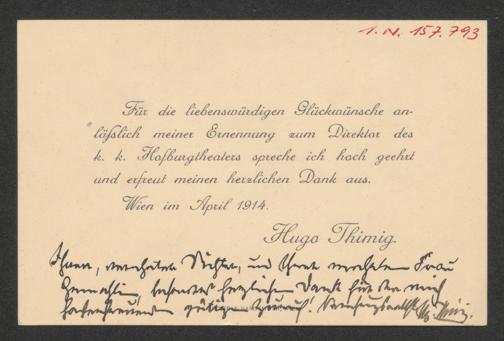 I.N. 157.793
Für die liebenswürdigen Glückwünsche an-
läßlich meiner Ernennung zum Direktor des
k. k. Hofburgtheaters spreche ich hoch geehrt
und erfreut meinen herzlichen Dank aus.
Wien im April 1914.
Hugo Thimig.
Ihnen, verehrter Dichter, und Ihrer verehrten Frau
Gemahlin, besonders herzlichen Dank für den mich
gütigen Zuruf!